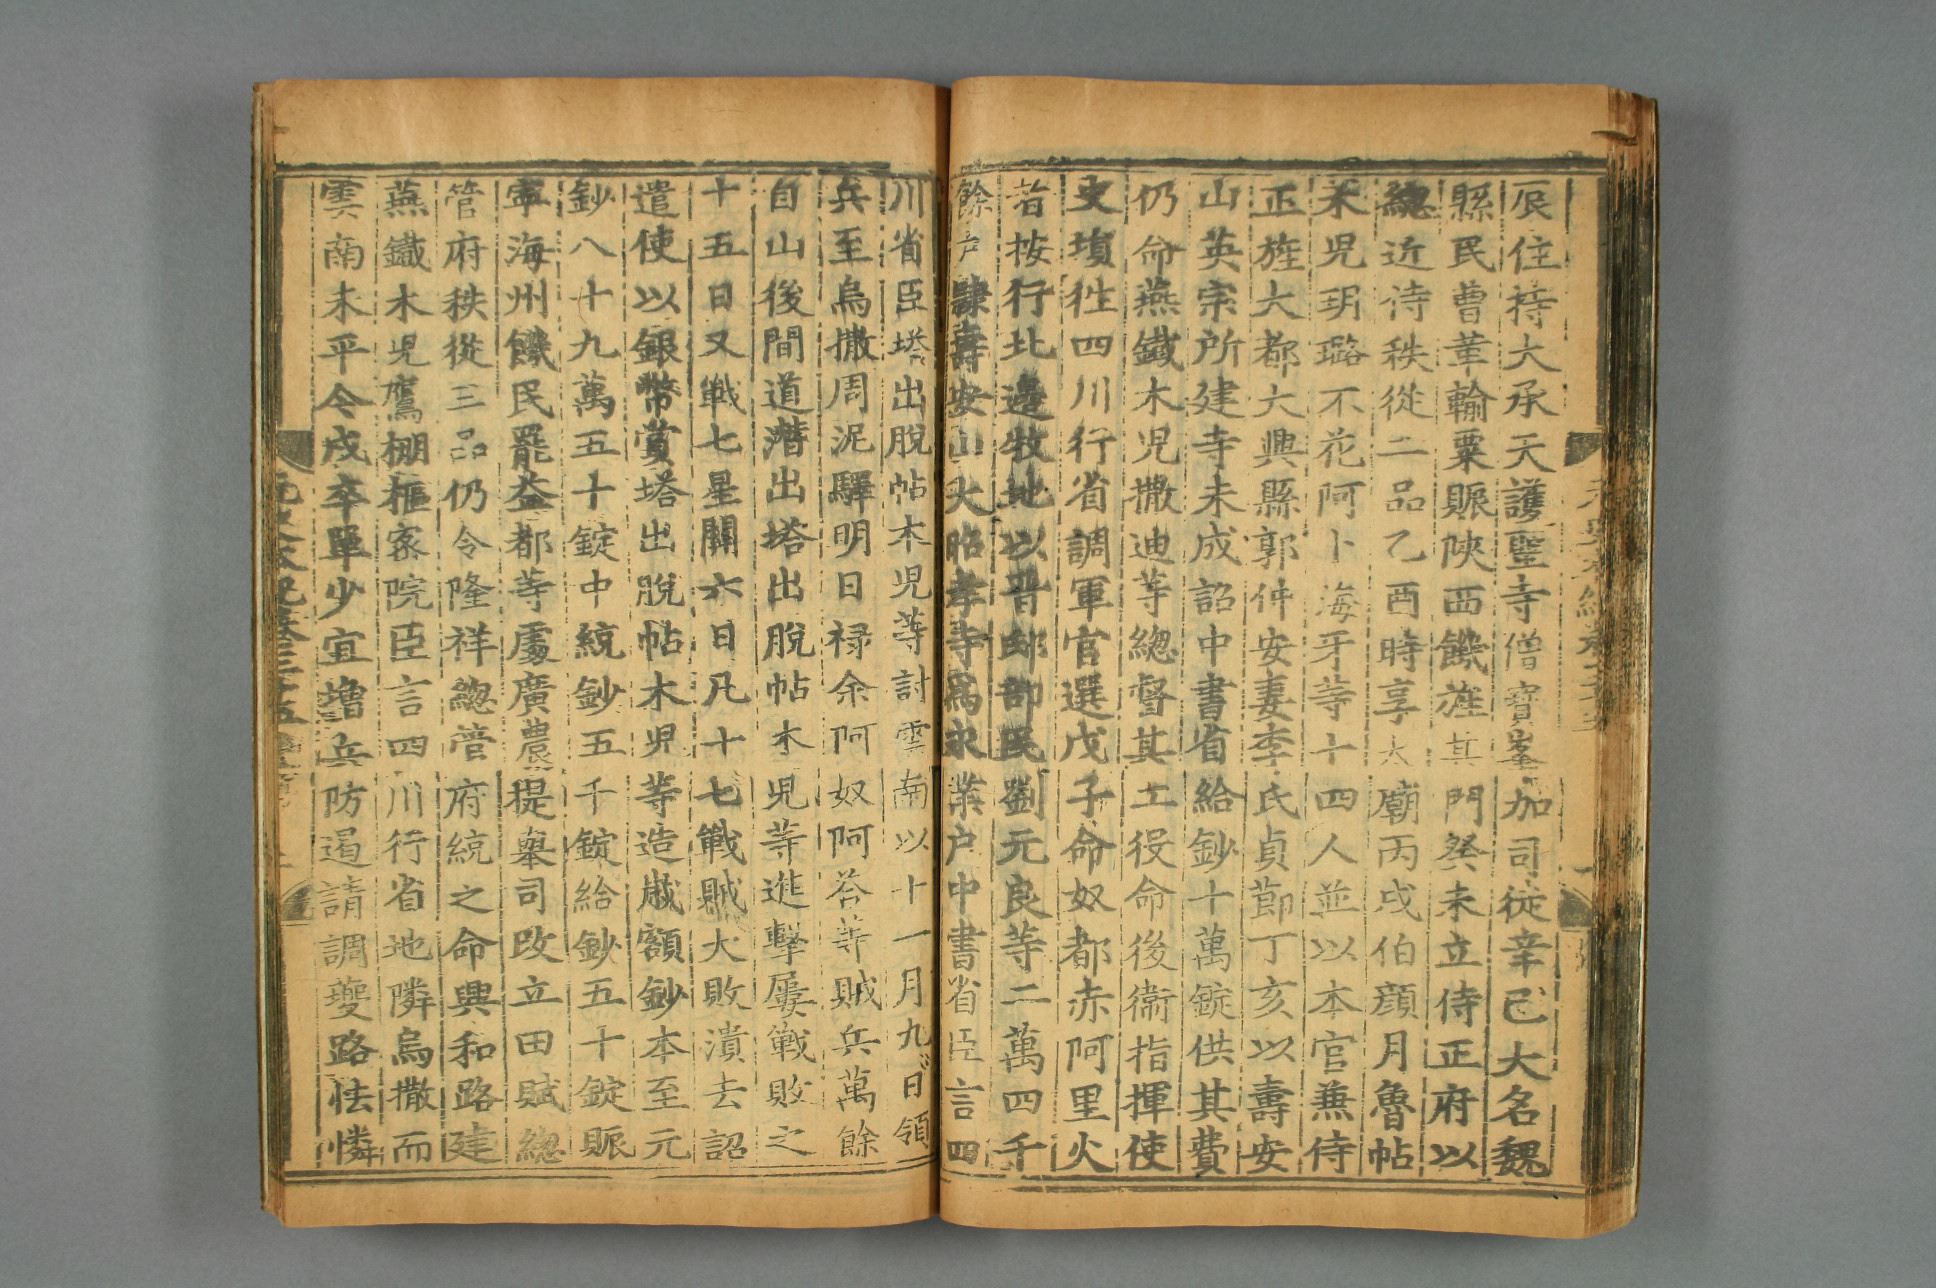 辰住持大承天護聖寺僧寶峯加司徒辛巳大名魏
縣民曹革輸粟賑陝西饑旌其門癸未立侍正府以
總近侍秩從二品乙酉時享太廟丙戌伯顏月魯帖
木兒玥璐不花阿卜海牙等十四人並以本官兼侍
正旌大都大興縣郭仲安妻李氏貞節丁亥以壽安
山英宗所建寺未成詔中書省給鈔十萬錠供其費
仍命燕鐵木兒撒迪等總督其工役命後衛指揮使
史塤徃四川行省調軍官選戊子命奴都赤阿里火
者按行北邊牧地以晋邸部民劉元良等二萬四千
餘戶隷壽安山大昭孝寺爲永業户中書省臣言四
川省臣塔出脫帖木兒等討雲南以十一月九日領
兵至烏撒周泥驛明日祿余阿奴阿荅等賊兵萬餘
自山後間道潛出塔出脫帖木兒等進擊屢戰敗之
十五日又戰七星關六日凡十七戰賊大敗潰去詔
遣使以銀幣賞塔出脫帖木兒等造歲額鈔本至元
鈔八十九萬五千錠中統鈔五千錠給鈔五十錠賑
寧海州饑民罷益都等處廣農提舉司改立田賦總
管府秩從三品仍令隆祥總管府統之命興和路建
燕鐵木兒鷹棚樞密院臣言四川行省地隣烏撒而
雲南未平今戍卒單少宜增兵防遏請調夔路怯憐
元史本紀卷三十五